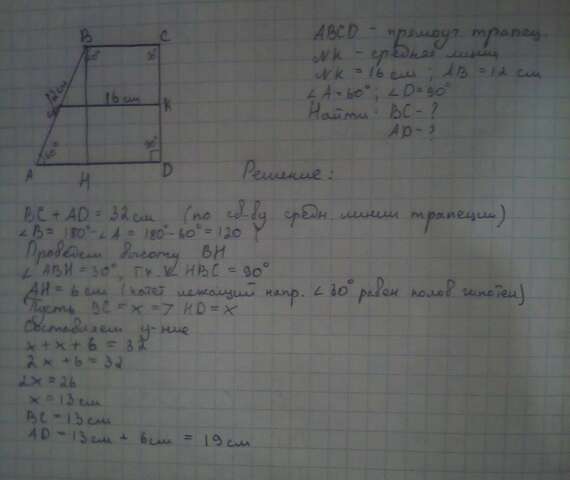 ABCD - прямоуг. трапец.
NK - средняя линия
NK = 16 см ; AB = 12 см
∠A = 60° ; ∠D = 90°
Найти: BC - ?
AD - ?
B
C
60°
90°
12 см
16 см
K
60°
90°
A
H
D
Решение:
BC + AD = 32 см (по св-ву средн. линии трапеции)
∠B = 180° - ∠A = 180° - 60° = 120
Проведем высоту BH
∠ABH = 30°, т.к. ∠HBC = 90°
AH = 6 см (катет лежащий напр. ∠30° равен полов. гипотен)
Пусть BC = x => HD = x
Составляем у-ние
x + x + 6 = 32
2x + 6 = 32
2x = 26
x = 13 см
BC = 13 см
AD = 13 см + 6 см = 19 см